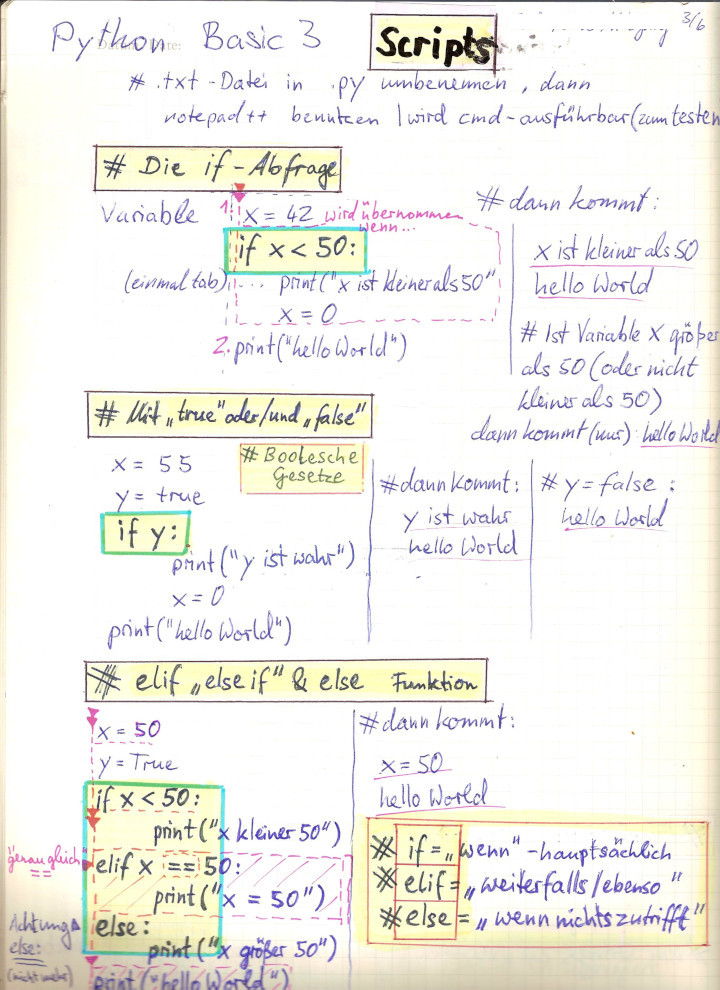 3/6
Python Basic 3
Scripts
# .txt-Datei in .py umbenennen, dann
notepad++ benutzen | wird cmd-ausführbar (zum testen
# Die if-Abfrage
Variable 1. x = 42 wird übernommen
wenn...
if x < 50:
(einmal tab) .... print("x ist kleiner als 50"
x = 0
2. print("hello World")
# dann kommt:
x ist kleiner als 50
hello World
# Ist Variable x größer
als 50 (oder nicht
kleiner als 50)
dann kommt (nur) hello World
# Mit „true" oder/und „false"
x = 55
y = true
# Boolesche
Gesetze
if y:
print("y ist wahr")
x = 0
print("hello World")
# dann kommt:
y ist wahr
hello World
# y = false :
hello World
# elif „else if" & else Funktion
x = 50
y = True
if x < 50:
print("x kleiner 50")
genau gleich
==
elif x == 50:
print("x = 50")
Achtung
else:
(nicht mehr)
else:
print("x größer 50")
print("hello World")
# dann kommt:
x = 50
hello World
# if = „wenn" - hauptsächlich
# elif = „weiterfalls/ebenso"
# else = „wenn nichts zutrifft"